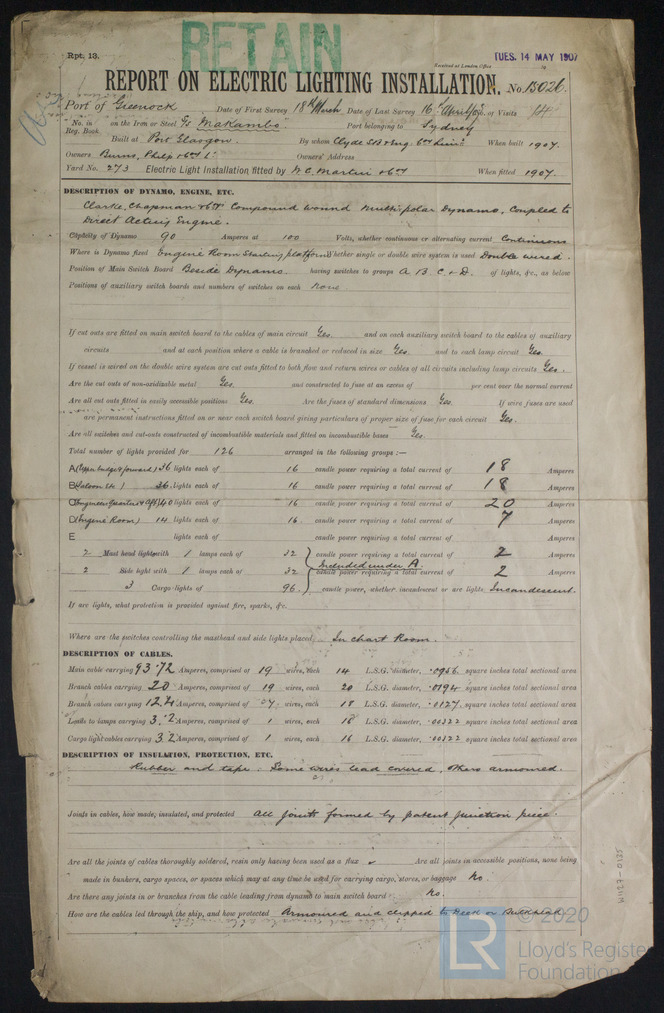 RETAIN
Rpt. 13.
TUES. 14 MAY 1907
Received at London Office
REPORT ON ELECTRIC LIGHTING INSTALLATION. No. 15026.
Port of Greenock Date of First Survey 18th March Date of Last Survey 16th April No. of Visits 14
No. in Reg. Book on the Iron or Steel Makambo Port belonging to Sydney
Built at Port Glasgow. By whom Clyde When built 1907.
Owners Burns, Philp & Co Ld Owners' Address
Yard No. 273 Electric Light Installation fitted by W. C. Martin & Co When fitted 1907.
DESCRIPTION OF DYNAMO, ENGINE, ETC.
Clarke, Chapman & Co Compound wound Multipolar Dynamo, Coupled to
Direct Acting Engine.
Capacity of Dynamo 90 Amperes at 100 Volts, whether continuous or alternating current Continuous
Where is Dynamo fixed Engine Room Starting platform Whether single or double wire system is used Double wired.
Position of Main Switch Board Beside Dynamo. having switches to groups A B C & D. of lights, &c., as below
Positions of auxiliary switch boards and numbers of switches on each None
If cut outs are fitted on main switch board to the cables of main circuit Yes. and on each auxiliary switch board to the cables of auxiliary
circuits and at each position where a cable is branched or reduced in size Yes. and to each lamp circuit Yes.
If vessel is wired on the double wire system are cut outs fitted to both flow and return wires or cables of all circuits including lamp circuits Yes.
Are the cut outs of non-oxidizable metal Yes. and constructed to fuse at an excess of per cent over the normal current
Are all cut outs fitted in easily accessible positions Yes. Are the fuses of standard dimensions Yes. If wire fuses are used
are permanent instructions fitted on or near each switch board giving particulars of proper size of fuse for each circuit Yes.
Are all switches and cut-outs constructed of incombustible materials and fitted on incombustible bases Yes.
Total number of lights provided for 126 arranged in the following groups :—
A (Upper bridge & forward) 36 lights each of 16 candle power requiring a total current of 18 Amperes
B (Saloon &c) 36 lights each of 16 candle power requiring a total current of 18 Amperes
C (Engineers Quarters & Aft) 40 lights each of 16 candle power requiring a total current of 20 Amperes
D (Engine Room) 14 lights each of 16 candle power requiring a total current of 7 Amperes
E lights each of candle power requiring a total current of Amperes
2 Mast head light with 1 lamps each of 32 candle power requiring a total current of 2 Amperes
Included under A.
2 Side light with 1 lamps each of 32 candle power requiring a total current of 2 Amperes
3 Cargo lights of 96 candle power, whether incandescent or arc lights Incandescent.
If arc lights, what protection is provided against fire, sparks, &c.
Where are the switches controlling the masthead and side lights placed In chart Room.
DESCRIPTION OF CABLES.
Main cable carrying 93.72 Amperes, comprised of 19 wires, each 14 L.S.G. diameter, .0956 square inches total sectional area
Branch cables carrying 20 Amperes, comprised of 19 wires, each 20 L.S.G. diameter, .0194 square inches total sectional area
Branch cables carrying 12.4 Amperes, comprised of 07 wires, each 18 L.S.G. diameter, .0127 square inches total sectional area
Leads to lamps carrying 3.2 Amperes, comprised of 1 wires, each 18 L.S.G. diameter, .00322 square inches total sectional area
Cargo light cables carrying 3.2 Amperes, comprised of 1 wires, each 16 L.S.G. diameter, .00322 square inches total sectional area
DESCRIPTION OF INSULATION, PROTECTION, ETC.
Rubber and tape. Some wires lead covered, others armoured.
Joints in cables, how made, insulated, and protected all joints formed by patent junction piece.
Are all the joints of cables thoroughly soldered, resin only having been used as a flux Are all joints in accessible positions, none being
made in bunkers, cargo spaces, or spaces which may at any time be used for carrying cargo, stores, or baggage No.
Are there any joints in or branches from the cable leading from dynamo to main switch board No.
How are the cables led through the ship, and how protected Armoured and clipped to Deck or Bulkhead
W1127-0125
LR © 2020
Lloyd's Register
Foundation